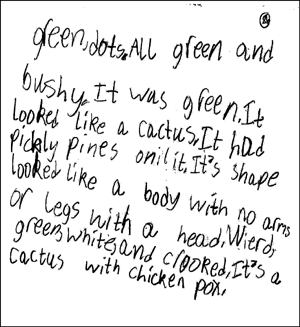 8
green, dots. All green and
bushy. It was green. It
looked like a cactus. It had
Pickly pines onil it. It's shape
looked like a body with no arms
or legs with a head. Wierd,
green, white, and crooked. It's a
cactus with chicken pox.